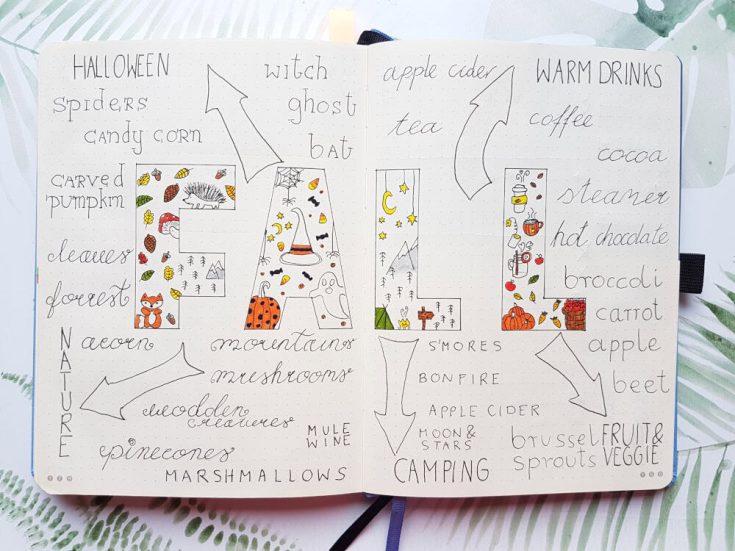 HALLOWEEN
spiders
candy corn
carved
pumpkin
leaves
forrest
witch
ghost
bat
FALL
NATURE
acorn
mountains
mushrooms
Wodden
creatures
pinecones
MULE
WINE
MARSHMALLOWS
apple cider
tea
WARM DRINKS
coffee
cocoa
steamer
hot chocolate
broccoli
carrot
apple
beet
S'MORES
BONFIRE
APPLE CIDER
MOON &
STARS
CAMPING
brussel
sprouts
FRUIT &
VEGGIE